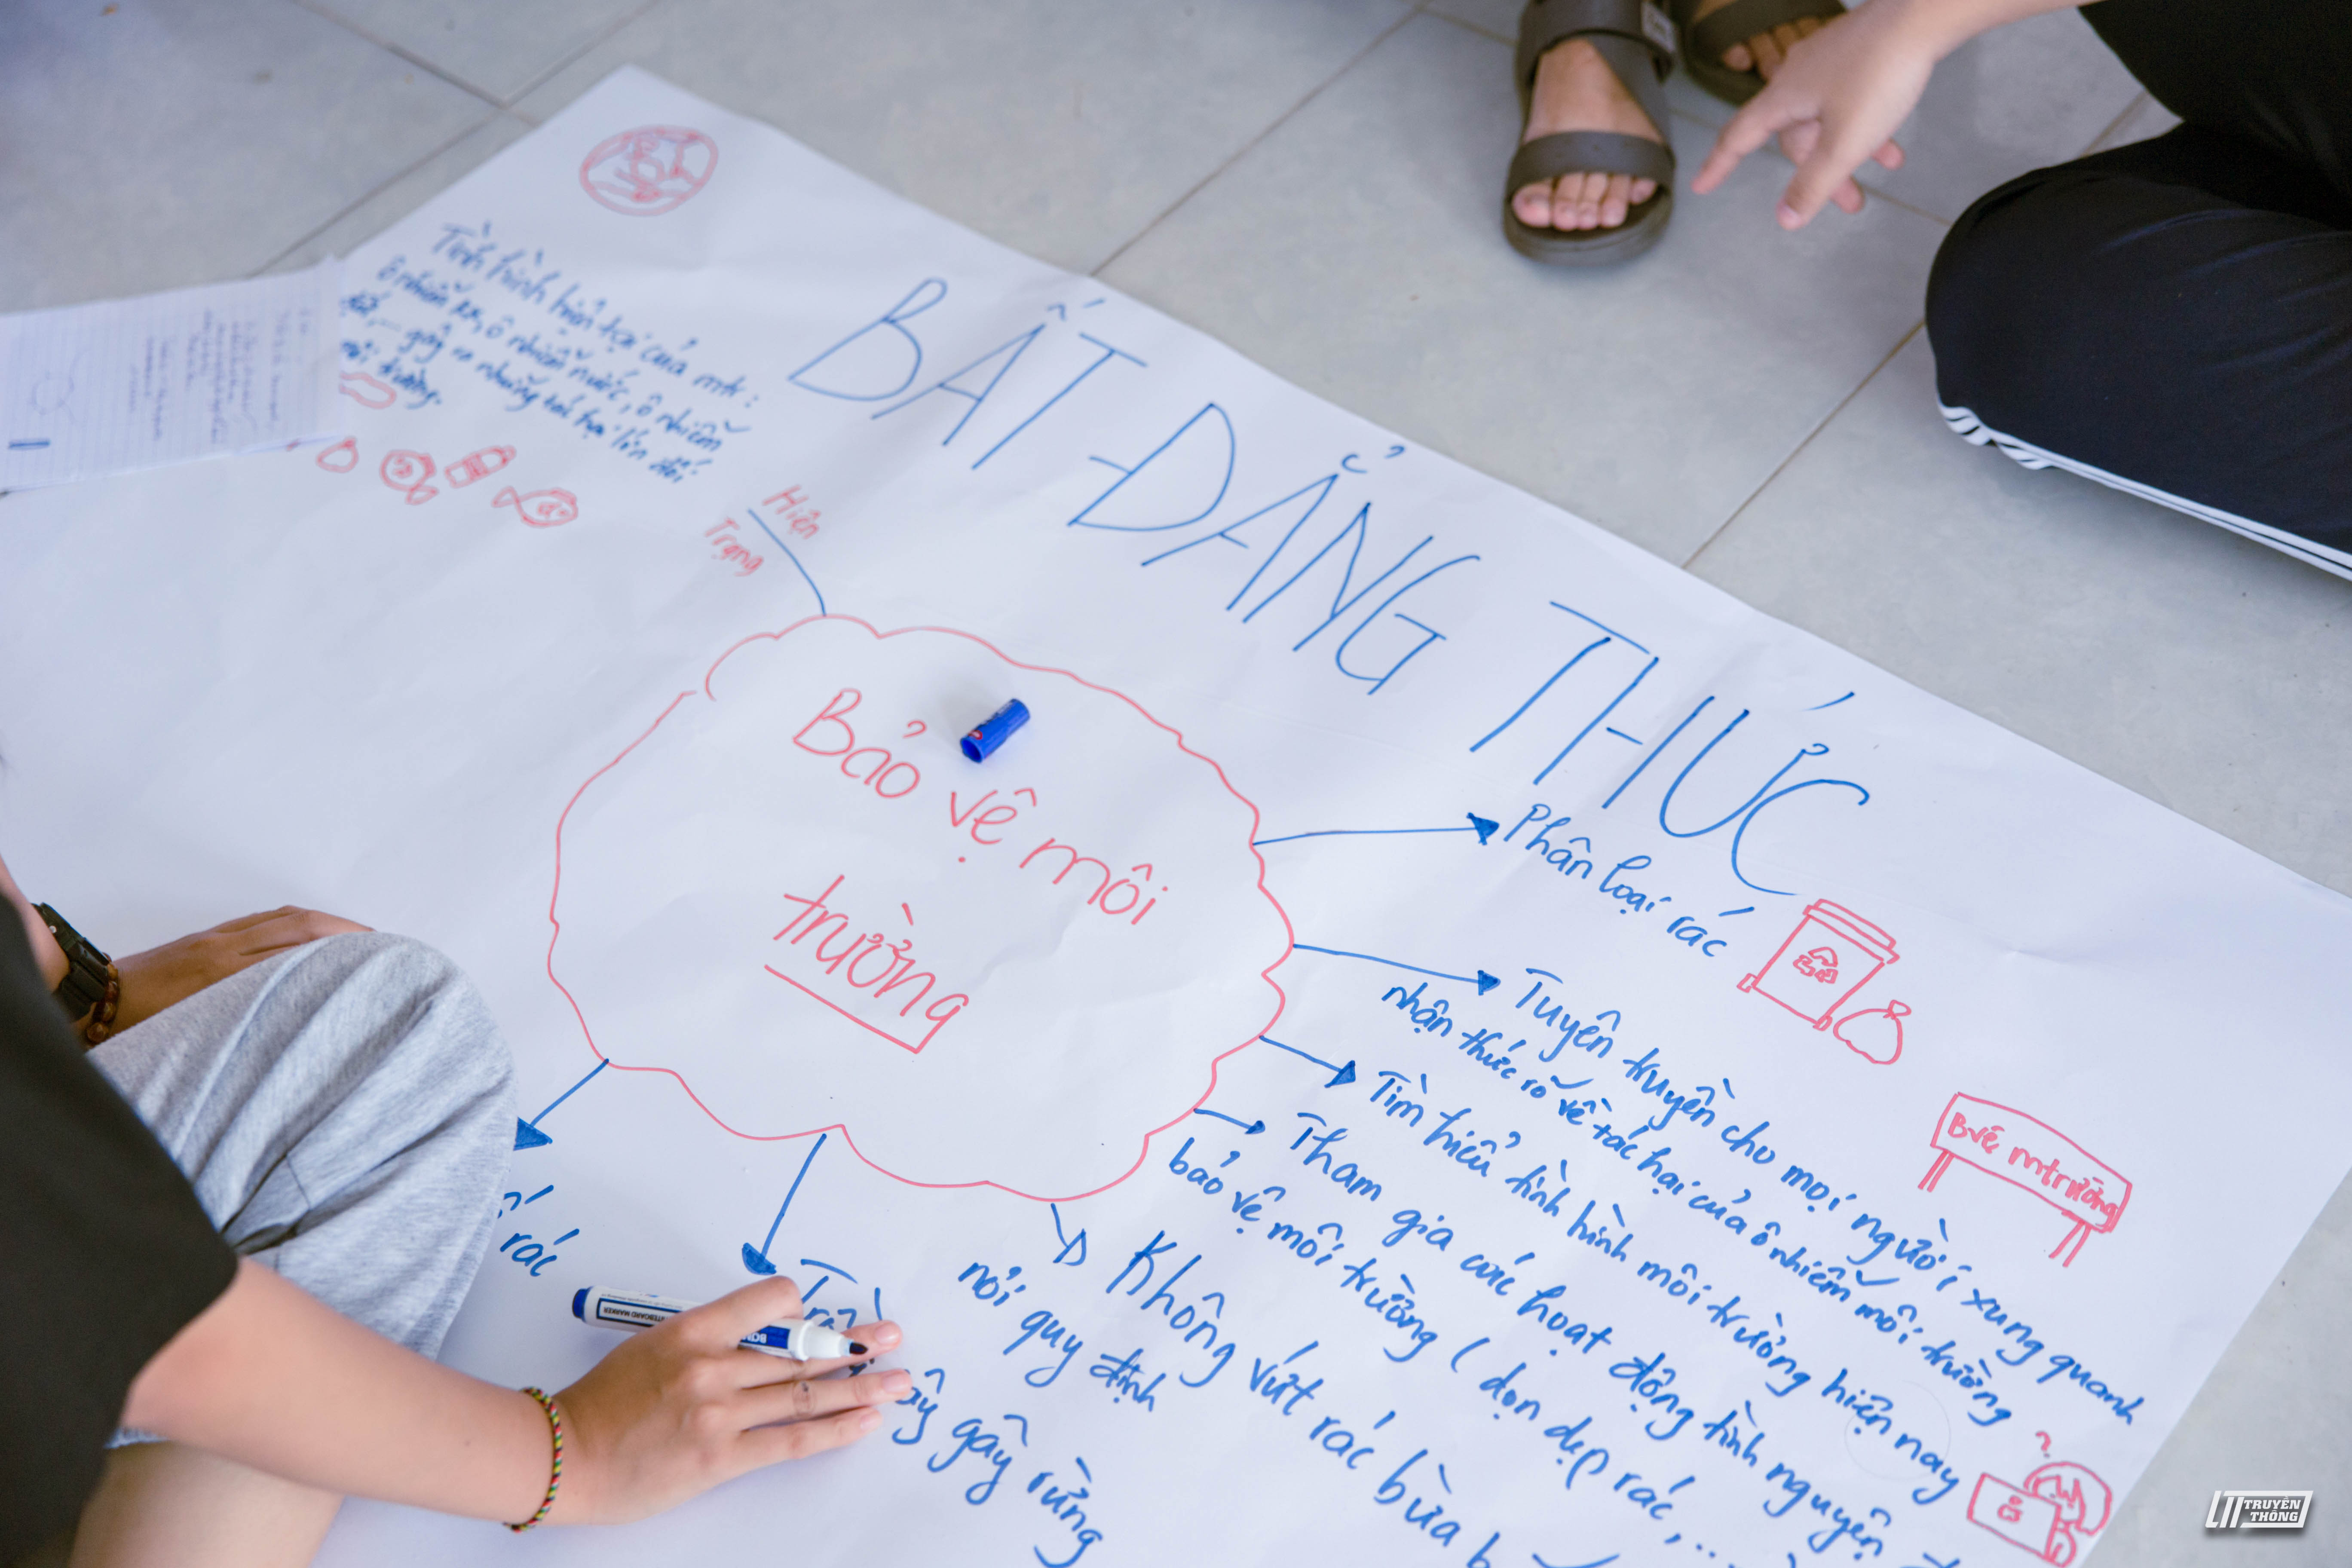 Tình hình hiện tại của mtr:
ô nhiễm kk, ô nhiễm nước, ô nhiễm
đất,... gây ra những trở lớn đối
môi trường.
BẤT ĐẲNG THỨC
Hiện
Trạng
Bảo vệ môi
trường
Phân loại rác
Tuyên truyền cho mọi người xung quanh
nhận thức rõ về tác hại của ô nhiễm môi trường
B vệ mtrường
Tìm hiểu tình hình môi trường hiện nay
Tham gia các hoạt động tình nguyện
bảo vệ môi trường (dọn dẹp rác,...
?
Không vứt rác bừa b
nơi quy định
gây rừng
rác
TRUYỀN
THÔNG